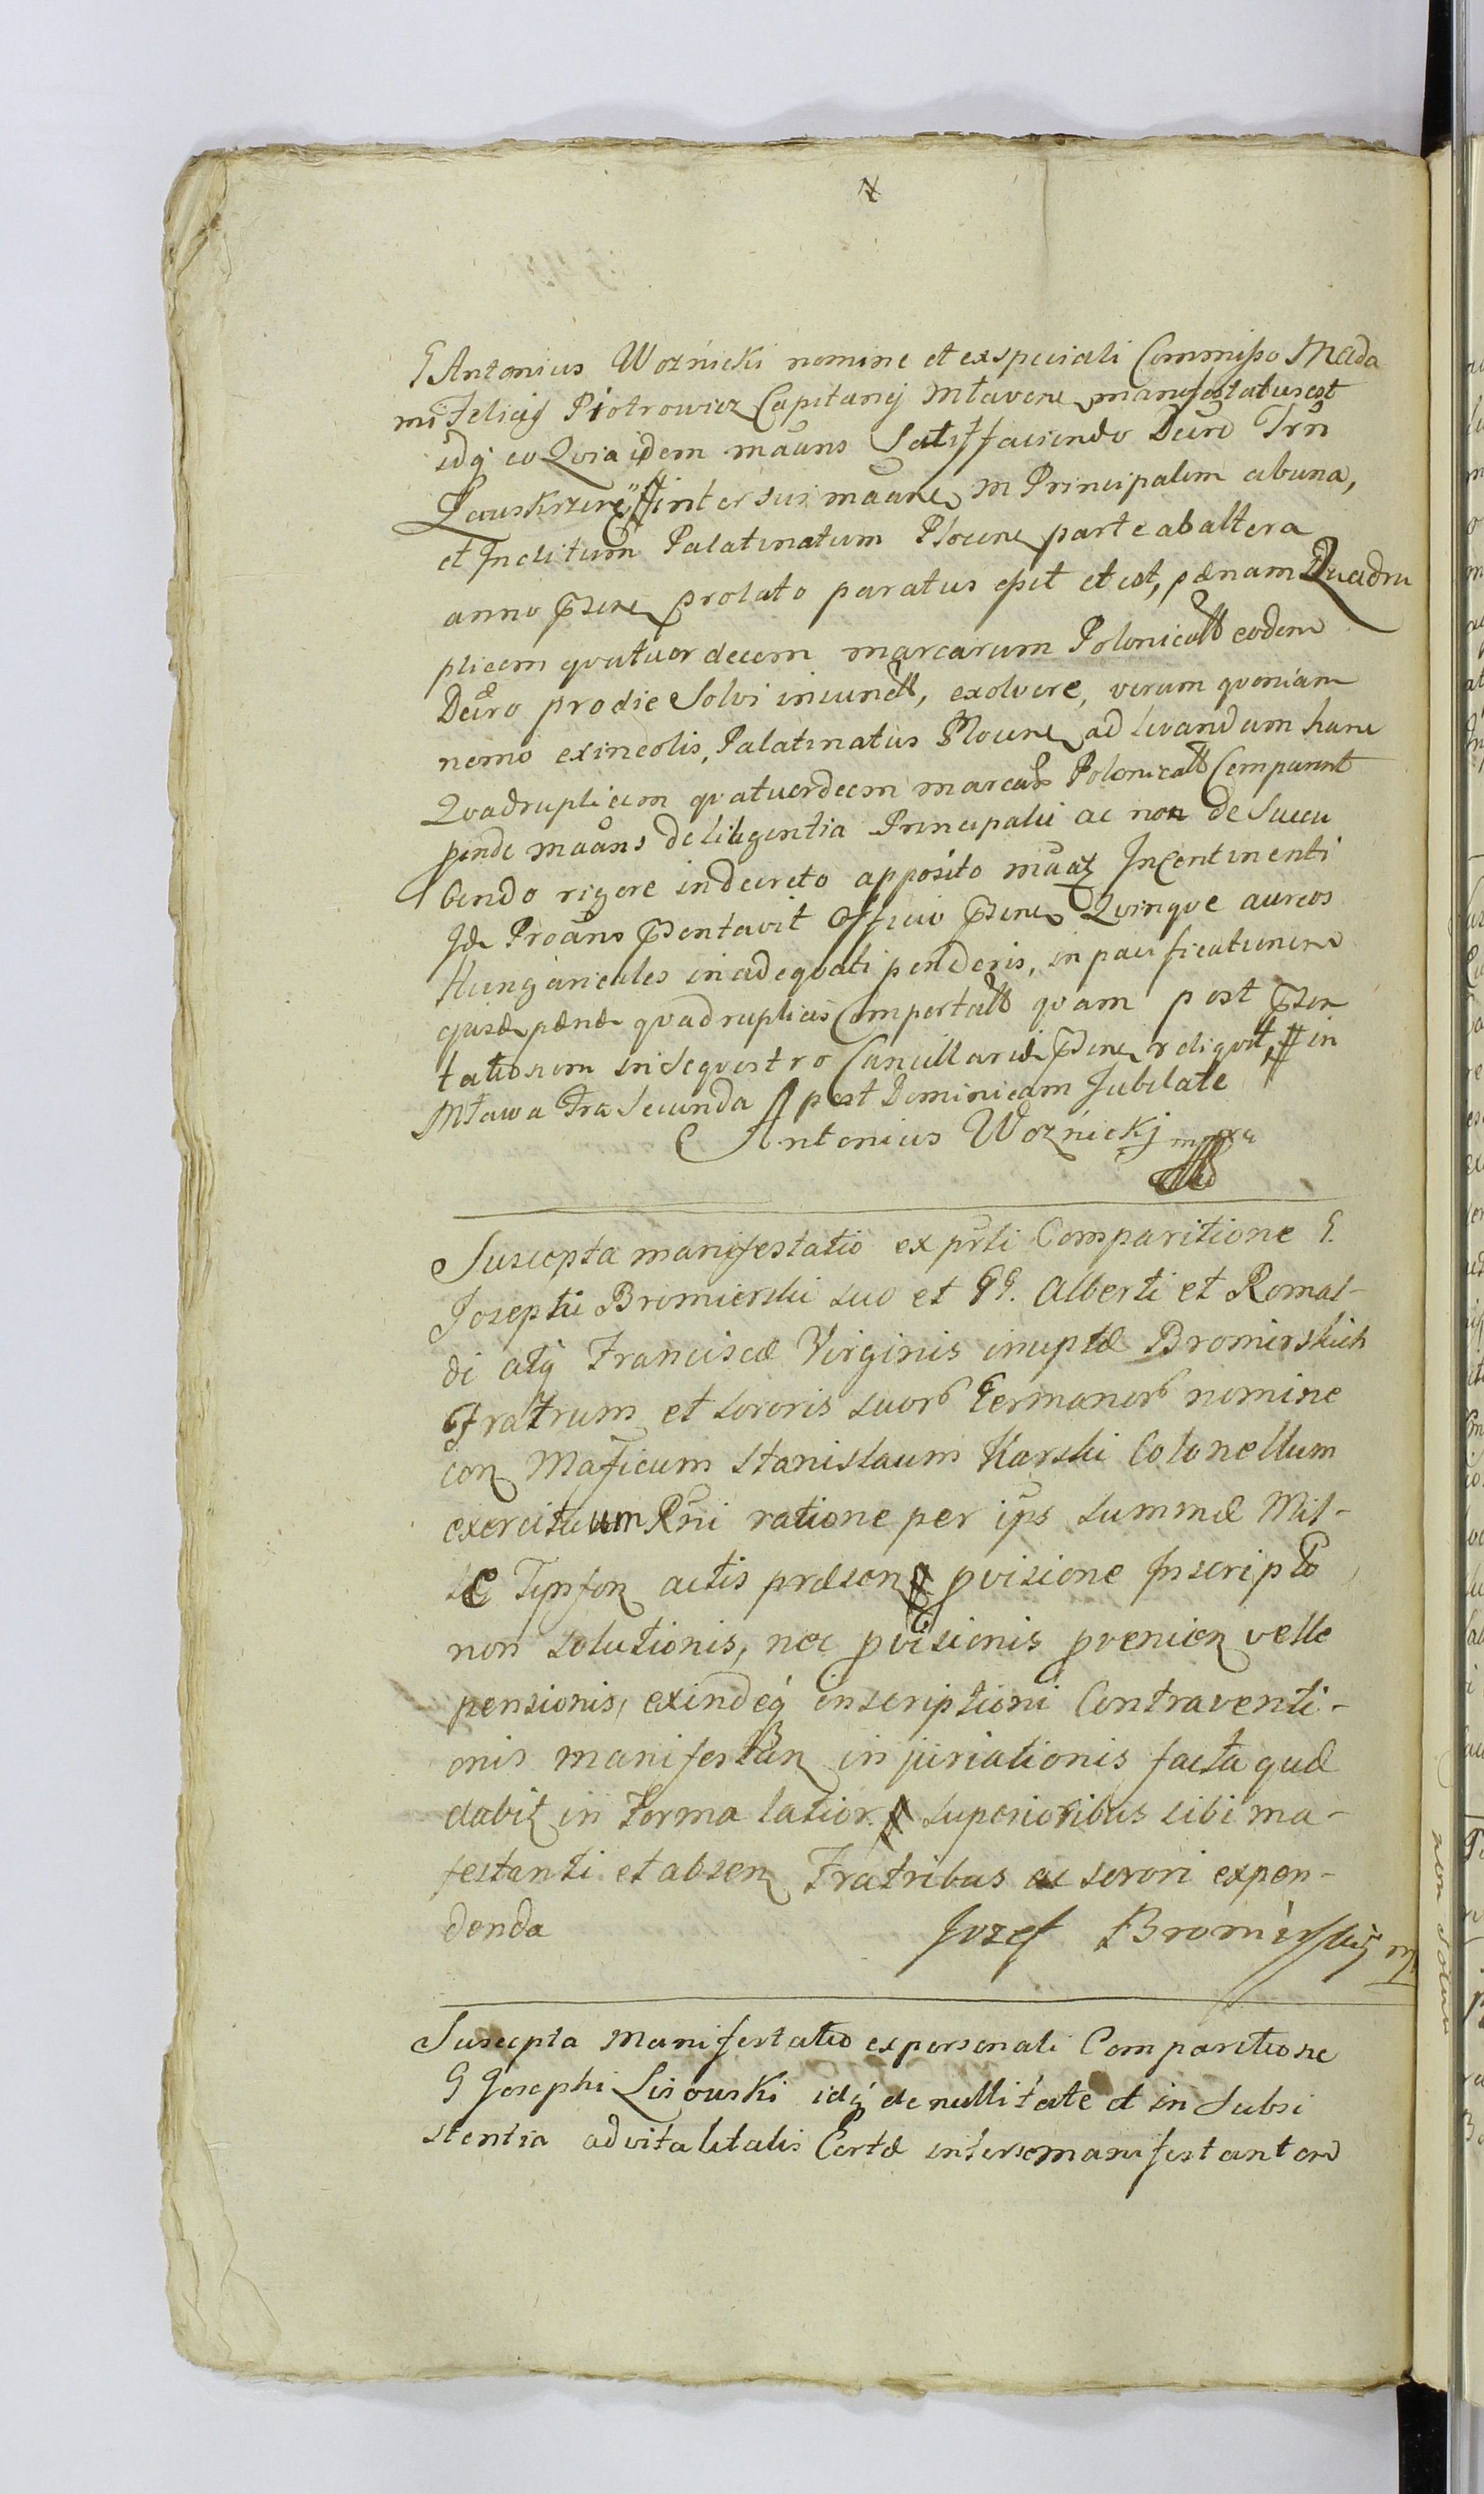 G Antonius Woźnicki nomine et ex speciali Commisso Mada
mi Felicis Piotrowicz Capitanej Mławen manifestatus est
idq eo Qvia idem maans Satisfaciendo Decro Trn
inter sui maane m Principalem ab una,
et Inclitum Palatinatum Plocen parte ab altera
anno Psen prolato paratus esset et est, pænam Quadru
plicem qvatuor decem marcarum Polonical eodem
Decro pro die Solvi incunct, exolvere, verum qvoniam
nemo ex incolis, Palatinatus Plocen ad levandum hanc
Qvadruplicem qvatuordecem marcas Polonical Comparuit
pinde maans de diligentia Principalii ac non de Succu
bendo rigore in decreto apposito Incontinenti
Idm Proans Psentavit Officio Psen Qvinqve aureos
Hungaricales inadeqvati ponderis, in pacificationem
ejusd pænæ qvadruplicis Comportal qvam post Psen
tationem in Seqvestro Cancellariæ Psen reliqvit, in
Mława Fra Secunda post Dominicam Jubilate
Antonius Woźnickj mppa
Suscepta manifestatio ex prli Comparitione G.
Josephi Bromierski suo et GG. Alberti et Romal-
di atq Franciscæ Virginis inuptæ Bromirskich
Fratrum et sororis suor Germanor nomine
con Maficum Stanislaum Karski Colonellum
exercituum Rni ratione per ips summæ Mil-
le Tynfon actis præsen pvisione Inscripto
non solutionis, nec pvisionis pvenien velle
pensionis, exindeq inscriptioni Contraventi-
onis manifestan injuriationis facta quæ
dabit in Forma latior superioribus sibi ma-
festanti et absen Fratribus ac sorori expen-
denda
Jozef Bromirskij mp
Suscepta Manifestatio ex personali Comparitione
G Josephi Lisowski idq de nullitate et in Subsi
stentia advitalitatis Certæ inter se manifestantem